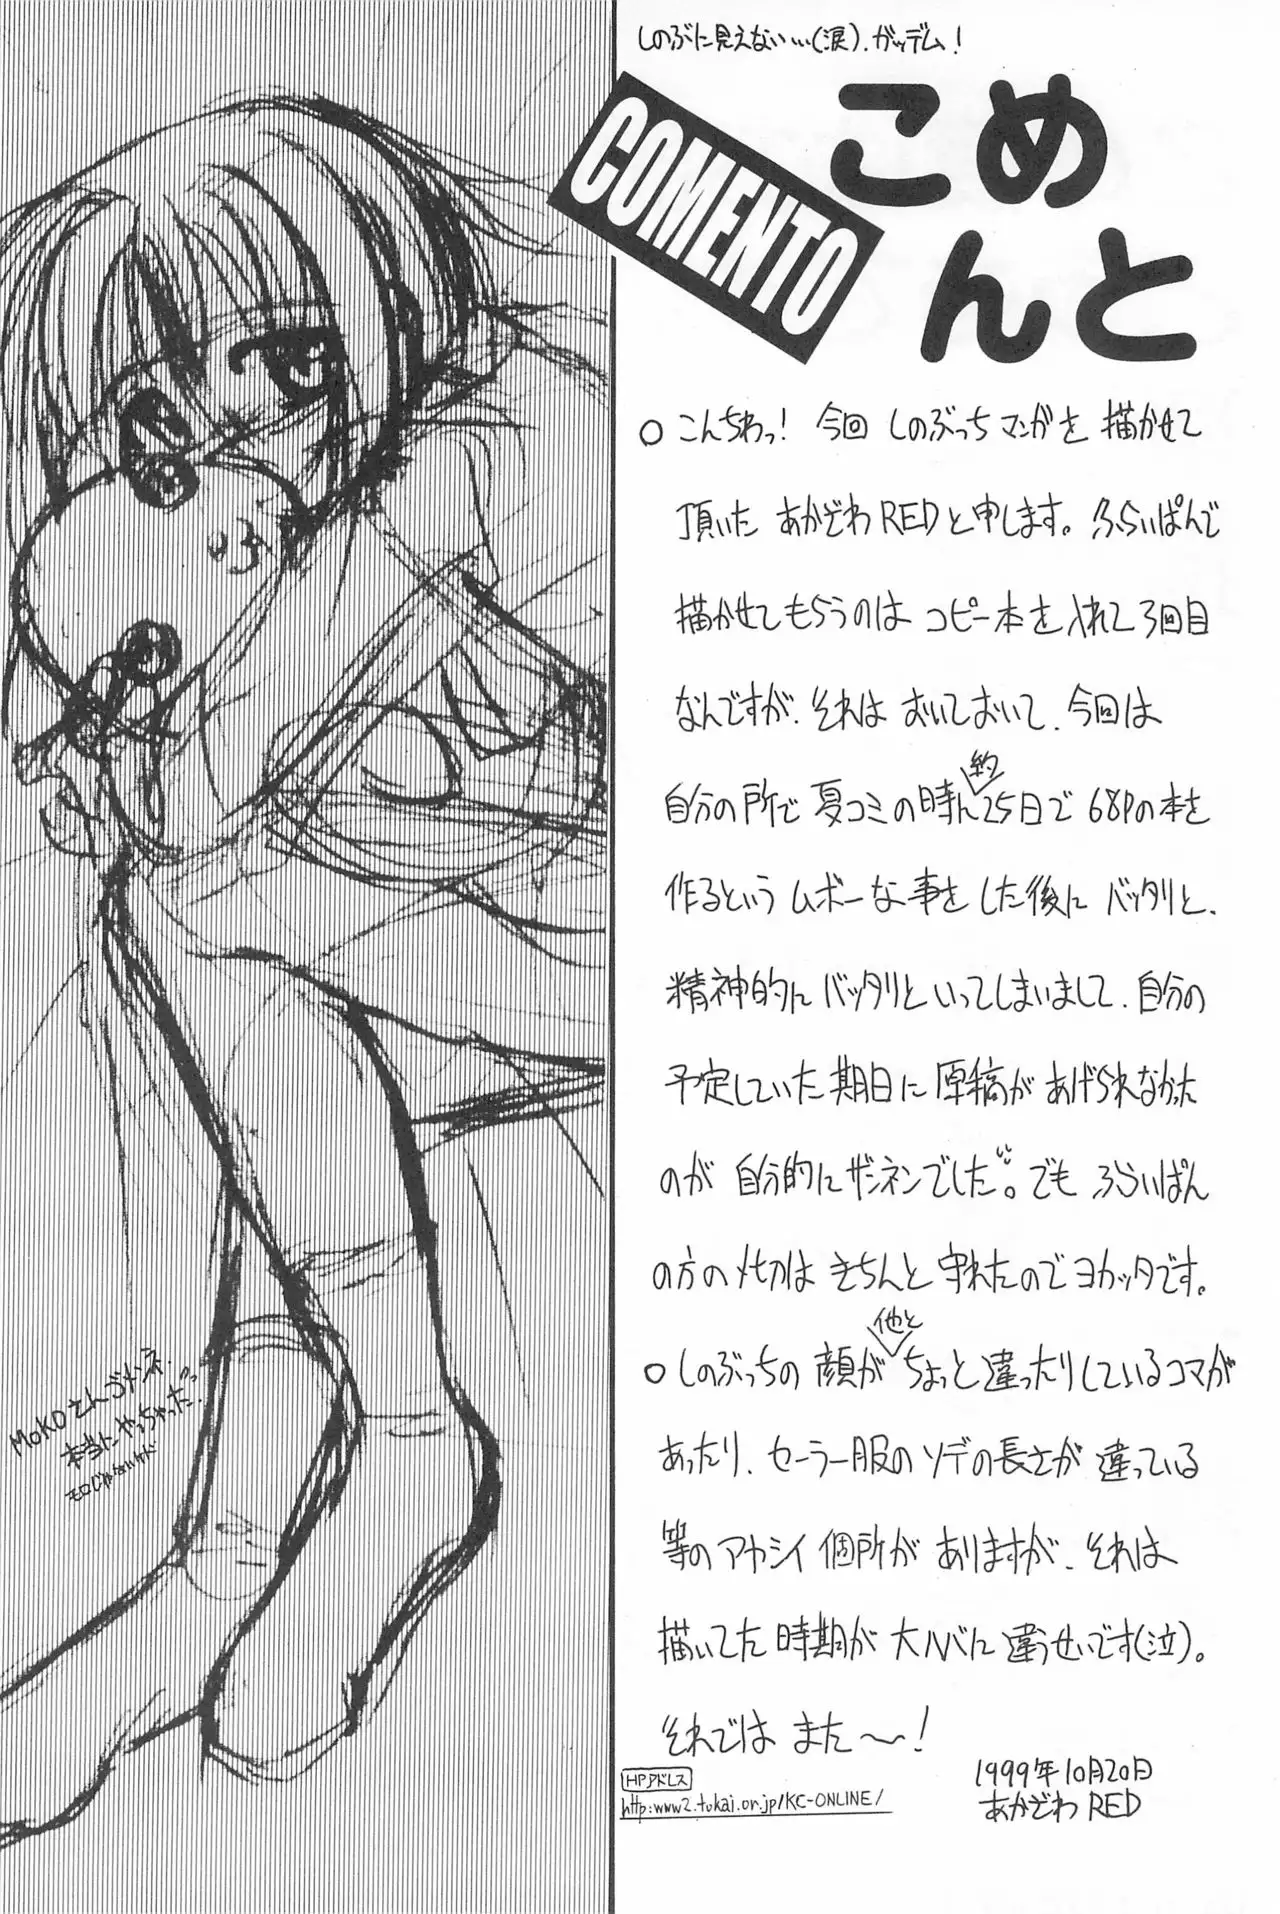 しのぶに見えない…(涙).ガッデム!
こめ
んと
COMENTO
○こんちわっ! 今回 しのぶっちマンガを 描かせて
頂いた あかぞわREDと申します。ふらいぱんで
描かせてもらうのは コピー本を入れて3回目
なんですが、それは おいておいて、今回は
自分の所で 夏コミの時に約25日で 68Pの本を
作るという ムボーな事をした後に バッタリと、
精神的に バッタリと いってしまいまして、自分の
予定していた期日に 原稿が あげられなかった
のが 自分的にザンネンでした。でも ふらいぱん
の方の〆切は きちんと 守れたのでヨカッタです。
○しのぶっちの 顔が他と ちょっと違ったりしているコマが
あったり、セーラー服のソデの長さが 違っている
等のアヤシイ 個所が ありますが、それは
描いてた時期が 大ルバに 違うせいです(泣)。
それでは また〜!
1999年10月20日
あかぞわ RED
HPアドレス
http:www2.tokai.or.jp/KC-ONLINE/
MOKOさんゴメンネ.
本当にやっちゃった.
モロじゃないけど